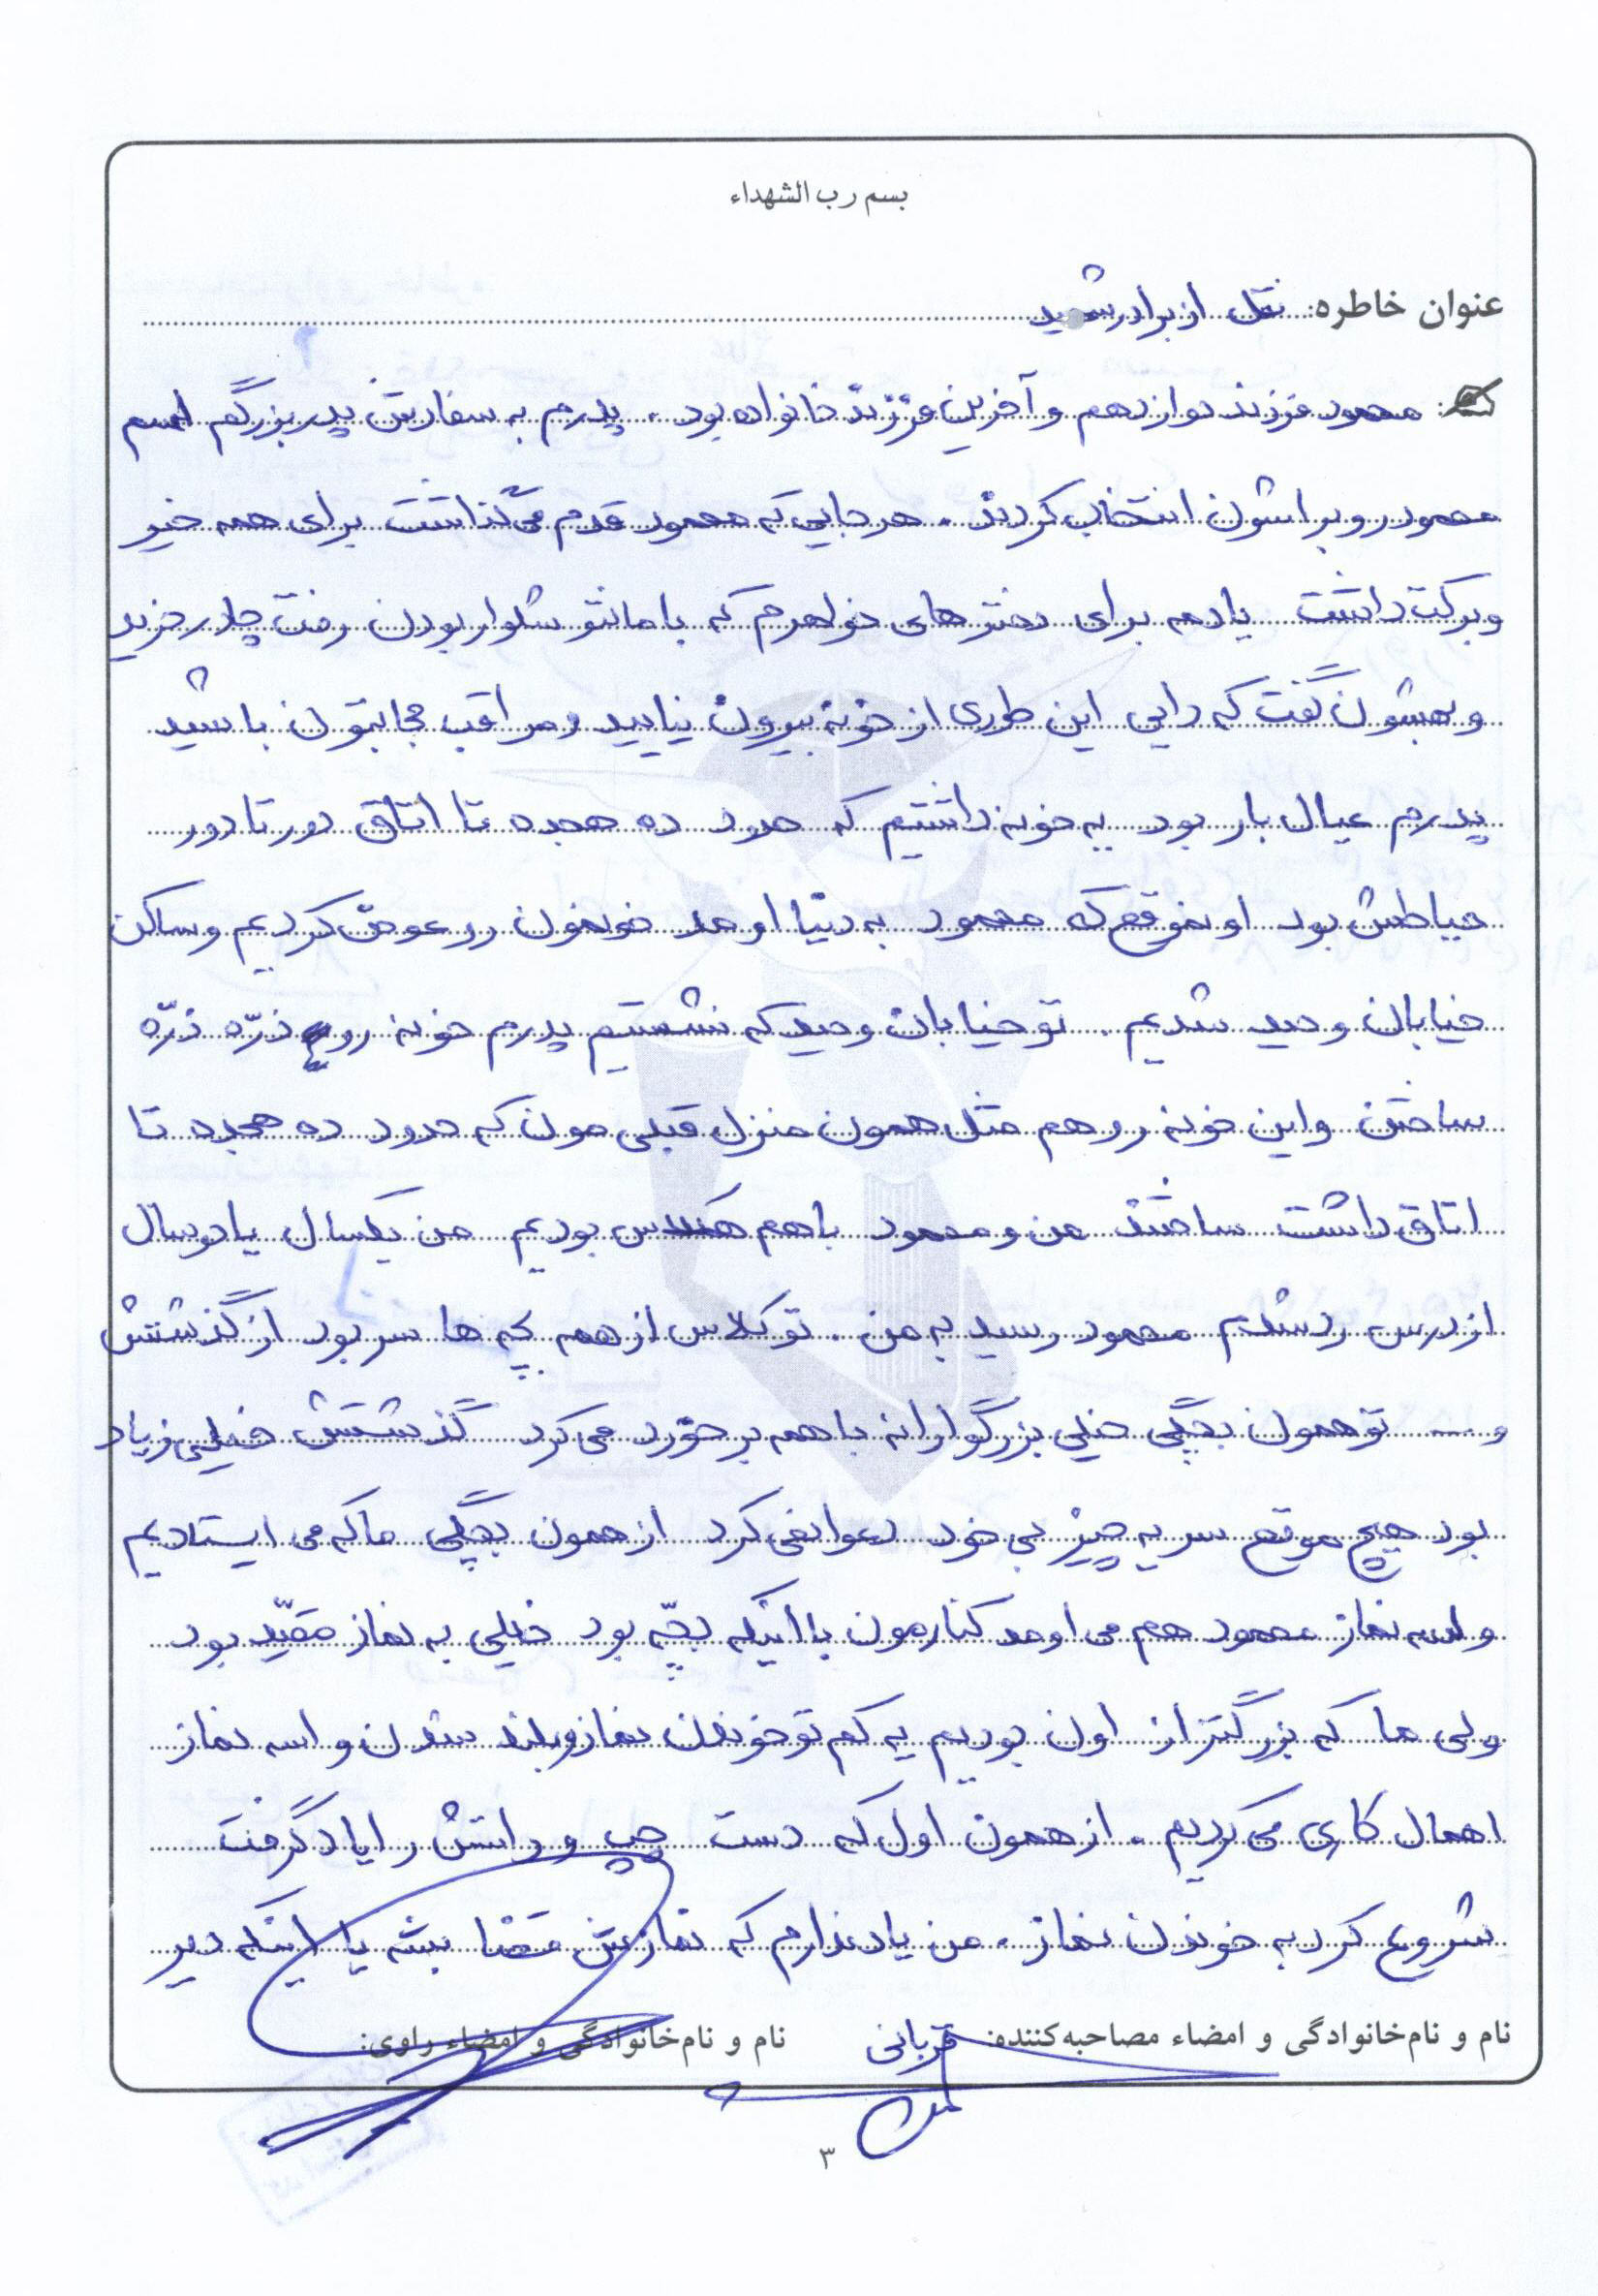 بسم رب الشهداء
عنوان خاطره: نقل از برادر شهید
محمود فرزند دوازدهم و آخرین فرزند خانواده بود . پدرم به سفارش پدربزرگم اسم
محمود رو براشون انتخاب کردند . هر جایی که محمود قدم می گذاشت برای همه خیر
و برکت داشت یادمه برای دخترهای خواهرم که با مانتو شلوار بودن رفت چادر خرید
و بهشون گفت که دایی این طوری از خونه بیرون نیایید و مراقب حجابتون باشید
پدرم عیال بار بود یه خونه داشتیم که حدود ده هجده تا اتاق دور تا دور
حیاطش بود اونموقع که محمود به دنیا اومد خونمون رو عوض کردیم و ساکن
خیابان وحید شدیم . تو خیابان وحید که نشستیم پدرم خونه رو ذرّه ذرّه
ساختن و این خونه رو هم مثل همون منزل قبلی مون که حدود ده هجده تا
اتاق داشت ساختند من و محمود با هم همکلاس بودیم من یکسال یا دوسال
از درس رد شدم محمود رسید به من . تو کلاس از همه بچه ها سر بود از گذشتش
و .... تو همون بچگی خیلی بزرگوارانه با همه برخورد می کرد گذشتش خیلی زیاد
بود هیچ موقع سر یه چیز بی خود دعوا نمی کرد از همون بچگی ما که می ایستادیم
واسه نماز محمود هم می اومد کنارمون با اینکه بچّه بود خیلی به نماز مقیّد بود
ولی ما که بزرگتر از اون بودیم یه کم تو خوندن نماز و بلند شدن واسه نماز
اهمال کاری می کردیم . از همون اول که دست چپ و راستش را یاد گرفت
شروع کرد به خوندن نماز . من یاد ندارم که نمازش قضا بشه یا اینکه دیر
نام و نام‌خانوادگی و امضاء مصاحبه‌کننده: قربانی
نام و نام‌خانوادگی و امضاء راوی:
۳